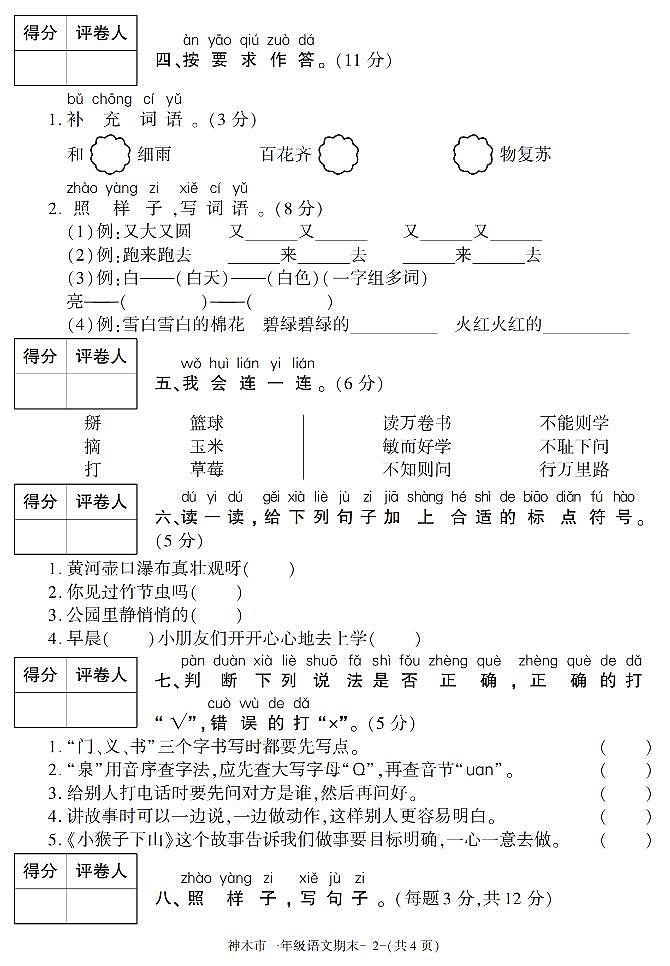 得分 评卷人
àn yāo qiú zuò dá
四、按要求作答。(11分)
bǔ chōng cí yǔ
1. 补充词语。(3分)
和 细雨 百花齐 物复苏
zhào yàng zi xiě cí yǔ
2. 照样子,写词语。(8分)
(1)例:又大又圆 又______又______ 又______又______
(2)例:跑来跑去 ______来______去 ______来______去
(3)例:白——(白天)——(白色)(一字组多词)
亮——( )——( )
(4)例:雪白雪白的棉花 碧绿碧绿的__________ 火红火红的__________
得分 评卷人
wǒ huì lián yi lián
五、我会连一连。(6分)
掰 篮球 读万卷书 不能则学
摘 玉米 敏而好学 不耻下问
打 草莓 不知则问 行万里路
得分 评卷人
dú yi dú gěi xià liè jù zi jiā shàng hé shì de biāo diǎn fú hào
六、读一读,给下列句子加上合适的标点符号。
(5分)
1. 黄河壶口瀑布真壮观呀( )
2. 你见过竹节虫吗( )
3. 公园里静悄悄的( )
4. 早晨( )小朋友们开开心心地去上学( )
得分 评卷人
pàn duàn xià liè shuō fǎ shì fǒu zhèng què zhèng què de dǎ
七、判断下列说法是否正确,正确的打
cuò wù de dǎ
“√”,错误的打“×”。(5分)
1. “门、义、书”三个字书写时都要先写点。 ( )
2. “泉”用音序查字法,应先查大写字母“Q”,再查音节“uan”。 ( )
3. 给别人打电话时要先问对方是谁,然后再问好。 ( )
4. 讲故事时可以一边说,一边做动作,这样别人更容易明白。 ( )
5. 《小猴子下山》这个故事告诉我们做事要目标明确,一心一意去做。 ( )
得分 评卷人
zhào yàng zi xiě jù zi
八、照样子,写句子。(每题3分,共12分)
神木市一年级语文期末- 2-(共4页)